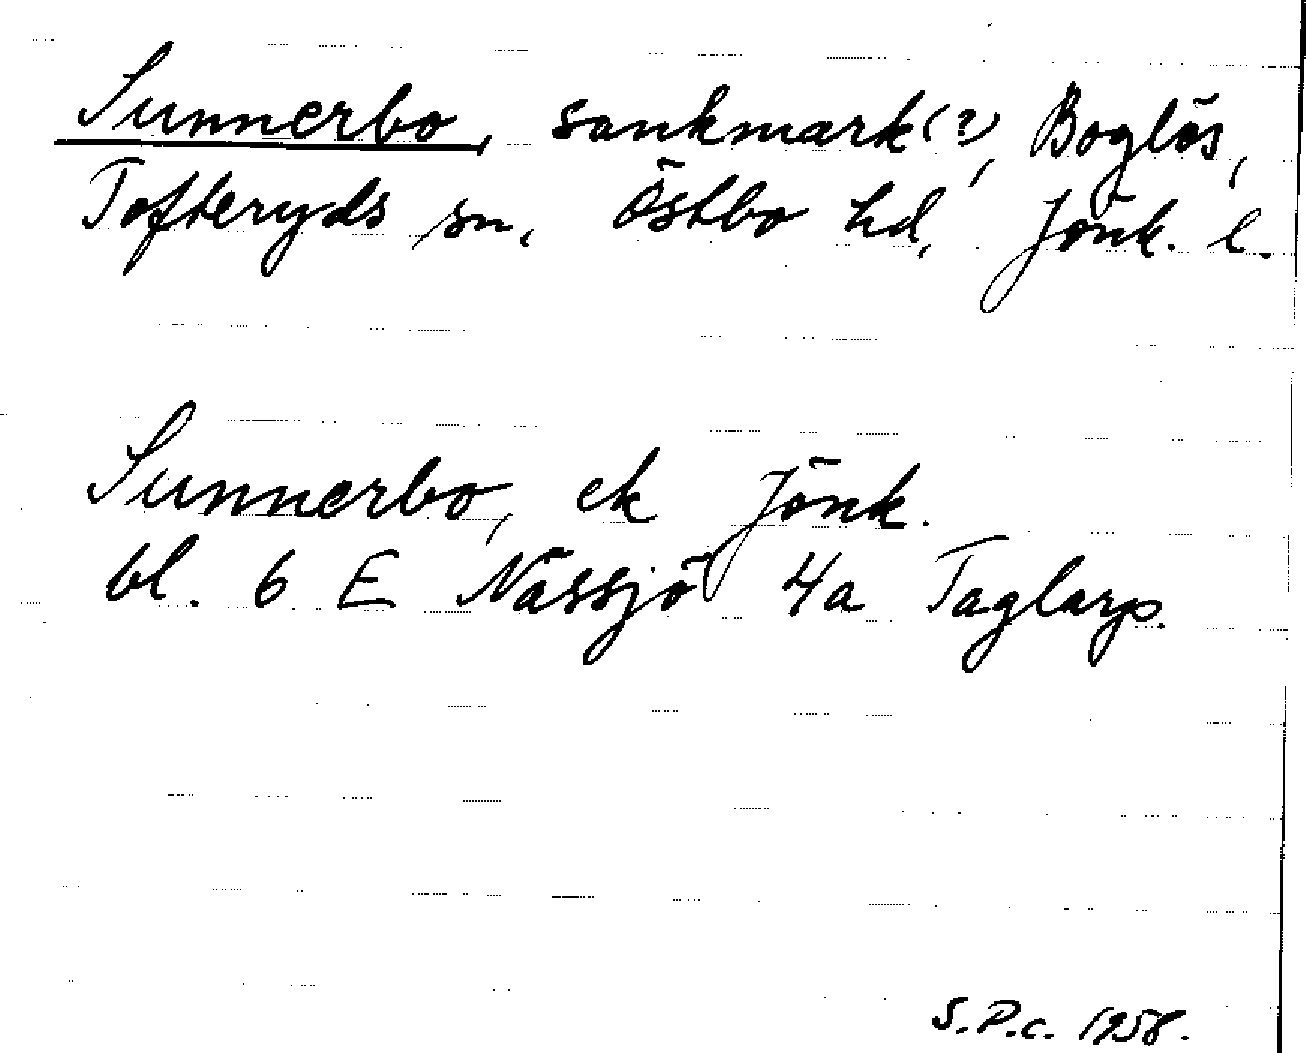 Sunnerbo, sankmark(?), Boglös,
Tofteryds sn, Östbo hd, Jönk. l.
Sunnerbo, ek Jönk.
bl. 6 E Nässjö 4a Taglarp.
S.P.c. 1958.